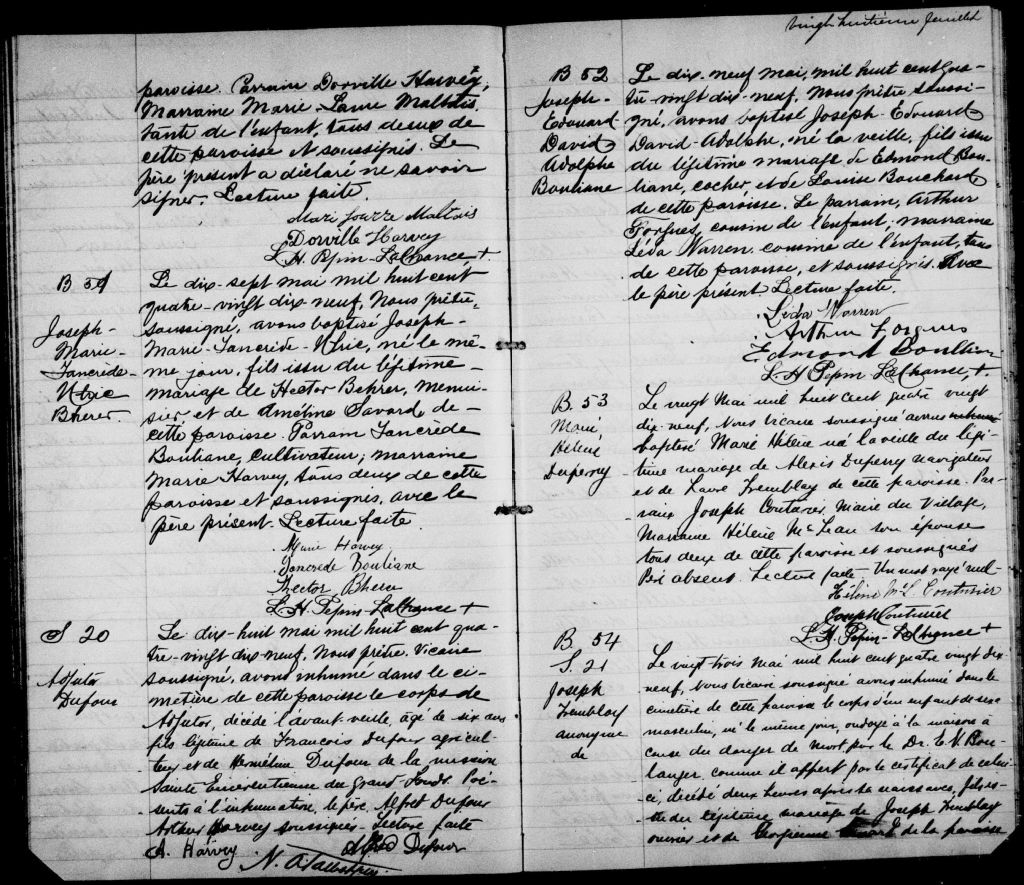 paroisse. Parrain Dorville Harvey,
Marraine Marie-Laure Maltais
tante de l'enfant, tous deux de
cette paroisse et soussignés. Le
père présent a déclaré ne savoir
signer. Lecture faite.
Maltais
Dorville Harvey
L. H. Pepin-LaChance +
B 51
Joseph-
Marie-
Tancrède-
Ulric
Bherer
Le dix-sept mai mil huit cent
quatre-vingt dix-neuf, Nous prêtre,
soussigné, avons baptisé Joseph-
Marie-Tancrède-Ulric, né le mê-
me jour, fils issu du légitime
mariage de Hector Behrer, menui-
sier et de Amélina Savard de
cette paroisse. Parrain Tancrède
Bouliane, cultivateur; marraine
Marie Harvey, tous deux de cette
paroisse et soussignés, avec le
père présent. Lecture faite.
Marie Harvey
Tancrede Bouliane
Hector Bherer
L. H. Pepin-LaChance +
S 20
Adjutor
Dufour
Le dix-huit mai mil huit cent qua-
tre-vingt dix-neuf, Nous prêtre, Vicaire
soussigné, avons inhumé dans le ci-
metière de cette paroisse le corps de
Adjutor, décédé l'avant-veille, âgé de six ans
fils légitime de François Dufour agricul-
teur et de Herméline Dufour de la mission
Sainte Emerentienne du Grand Fonds. Pré-
sents à l'inhumation, le père, Alfred Dufour
Arthur Harvey soussignés - Lecture faite
A. Harvey Alfred Dufour
vingt huitième feuillet
B 52
Joseph-
Edouard-
David
Adolphe
Bouliane
Le dix-neuf mai, mil huit cent qua-
tre-vingt dix-neuf, Nous prêtre soussi-
gné, avons baptisé Joseph-Edouard
David-Adolphe, né la veille, fils issu
du légitime mariage de Edmond Bou-
liane, cocher, et de Louise Bouchard
de cette paroisse. Le parrain, Arthur
Forgues, cousin de l'enfant, marraine
Léda Warren, cousine de l'enfant, tous
de cette paroisse, et soussignés avec
le père présent. Lecture faite.
Léda Warren
Arthur Forgues
Edmond Boulliane
L. H. Pepin LaChance, +
B. 53
Marie
Hélène
Duperry
Le vingt Mai mil huit cent quatre vingt
dix-neuf, Nous vicaire soussigné avons
baptisé Marie Hélène née la veille du légi-
time mariage de Alexis Duperry navigateur
et de Laure Tremblay de cette paroisse. Par-
rain Joseph Couturier, Maire du Village,
Marraine Hélène McLean son épouse
tous deux de cette paroisse et soussignés
Père absent. Lecture faite - Un mot rayé nul-
Hélène McL. Couturier
Joseph Couturier
L. H. Pepin-LaChance +
B. 54
S. 21
Joseph
Tremblay
anonyme
de
Le vingt trois Mai mil huit cent quatre vingt dix
neuf, Nous vicaire soussigné avons inhumé dans le
cimetière de cette paroisse le corps d'un enfant de sexe
masculin, né le même jour, ondoyé à la maison à
cause du danger de mort par le Dr. E. V. Bou-
langer, comme il appert par le certificat de celui-
ci, décédé deux heures après sa naissance, fils is-
su du légitime mariage de Joseph Tremblay
ouvrier et de Georgienne de la paroisse